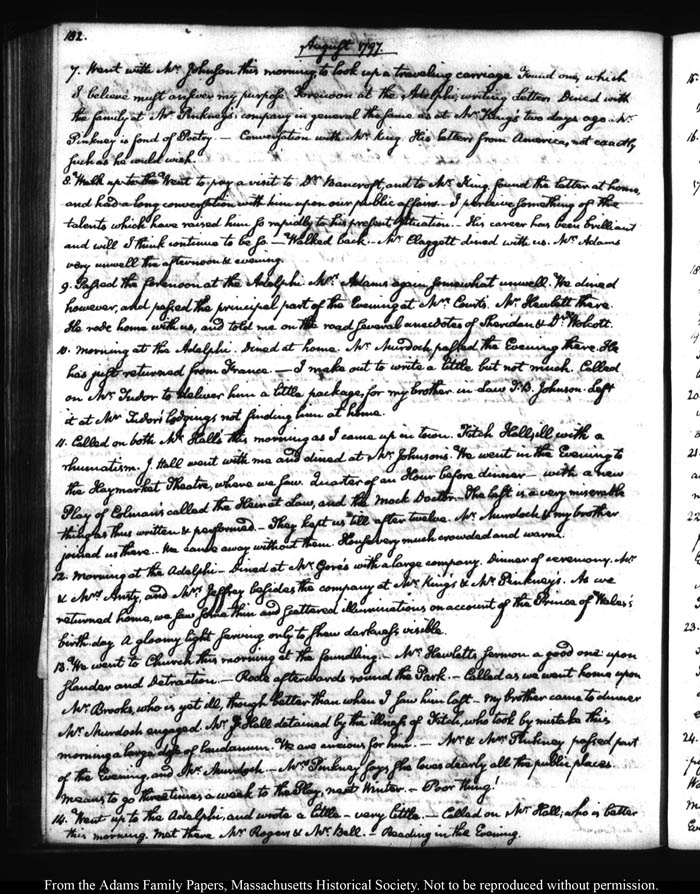 182.
August 1797.
7. Went with Mr. Johnson this morning, to look up a traveling carriage. Found one, which
I believe must answer my purpose. Forenoon at the Adelphi, writing letters. Dined with
the family at Mr. Pinkney's: company in general the same as at Mr. King's two days ago. Mr.
Pinkney is fond of Poetry. — Conversation with Mr. King. His letters from America, not exactly
such as he would wish.
8. Walk up to the Went to pay a visit to Dr. Bancroft, and to Mr. King, found the latter at home,
and had a long conversation with him upon our public affairs. — I perceive something of the
talents which have raised him so rapidly to his present situation. — His career has been brilliant
and will I think continue to be so. — Walked back. — Mr. Claggett dined with us. Mrs. Adams
very unwell the afternoon & evening.
9. Passed the forenoon at the Adelphi. Mrs. Adams again somewhat unwell. We dined
however, and passed the principal part of the Evening at Mrs. Court's. Mr. Hewlett there.
He rode home with us, and told me on the road several anecdotes of Sheridan & Dr. Wolcott.
10. Morning at the Adelphi. Dined at home. Mr. Murdoch passed the Evening there. He
has just returned from France. — I make out to write a little but not much. Called
on Mr. Tudor to deliver him a little package, for my brother in Law T. B. Johnson. Left
it at Mr. Tudor's lodgings not finding him at home.
11. Called on both Mr. Hall's this morning as I came up in town. Fitch Hall, ill with a
rhumatism. J. Hall went with me and dined at Mr. Johnson's. We went in the Evening to
the Haymarket Theatre, where we saw. Quarter of an Hour before dinner — with a new
Play of Colman's called the Heir at Law, and the Mock Doctor. The last is a very miserable
thing as thus written & performed. — They kept us till after twelve. Mr. Murdoch & my brother
joined us there. We came away without them. House very much crowded and warm.
12. Morning at the Adelphi. — Dined at Mr. Gore's with a large company. Dinner of ceremony. Mr.
& Mrs. Ansty, and Mr. Jeffrey besides the company at Mr. King's & Mr. Pinkney's. As we
returned home, we saw some thin and scattered illuminations on account of the Prince of Wales's
birth-day. A gloomy light serving only to shew darkness visible.
13. We went to Church this morning at the foundling. — Mr. Hewlett's sermon a good one upon
slander and Detraction. — Rode afterwards round the Park. — Called as we went home upon
Mr. Brooks, who is yet ill, though better than when I saw him last. — My brother came to dinner
Mr. Murdoch engaged. Mr. J. Hall detained by the illness of Fitch, who took by mistake this
morning a large dose of laudanum. We are anxious for him. — Mr. & Mrs. Pinkney passed part
of the Evening, and Mr. Murdoch. — Mrs. Pinkney says she loves dearly all the public places
means to go three times a week to the Play, next Winter. — Poor thing!
14. Went up to the Adelphi, and wrote a little — very little. — Called on Mr. Hall; who is better
this morning. Met there Mr. Rogers & Mr. Bell. — Reading in the Evening.
15.
16.
17
18
20.
21.
22.
23.
24.
From the Adams Family Papers, Massachusetts Historical Society. Not to be reproduced without permission.